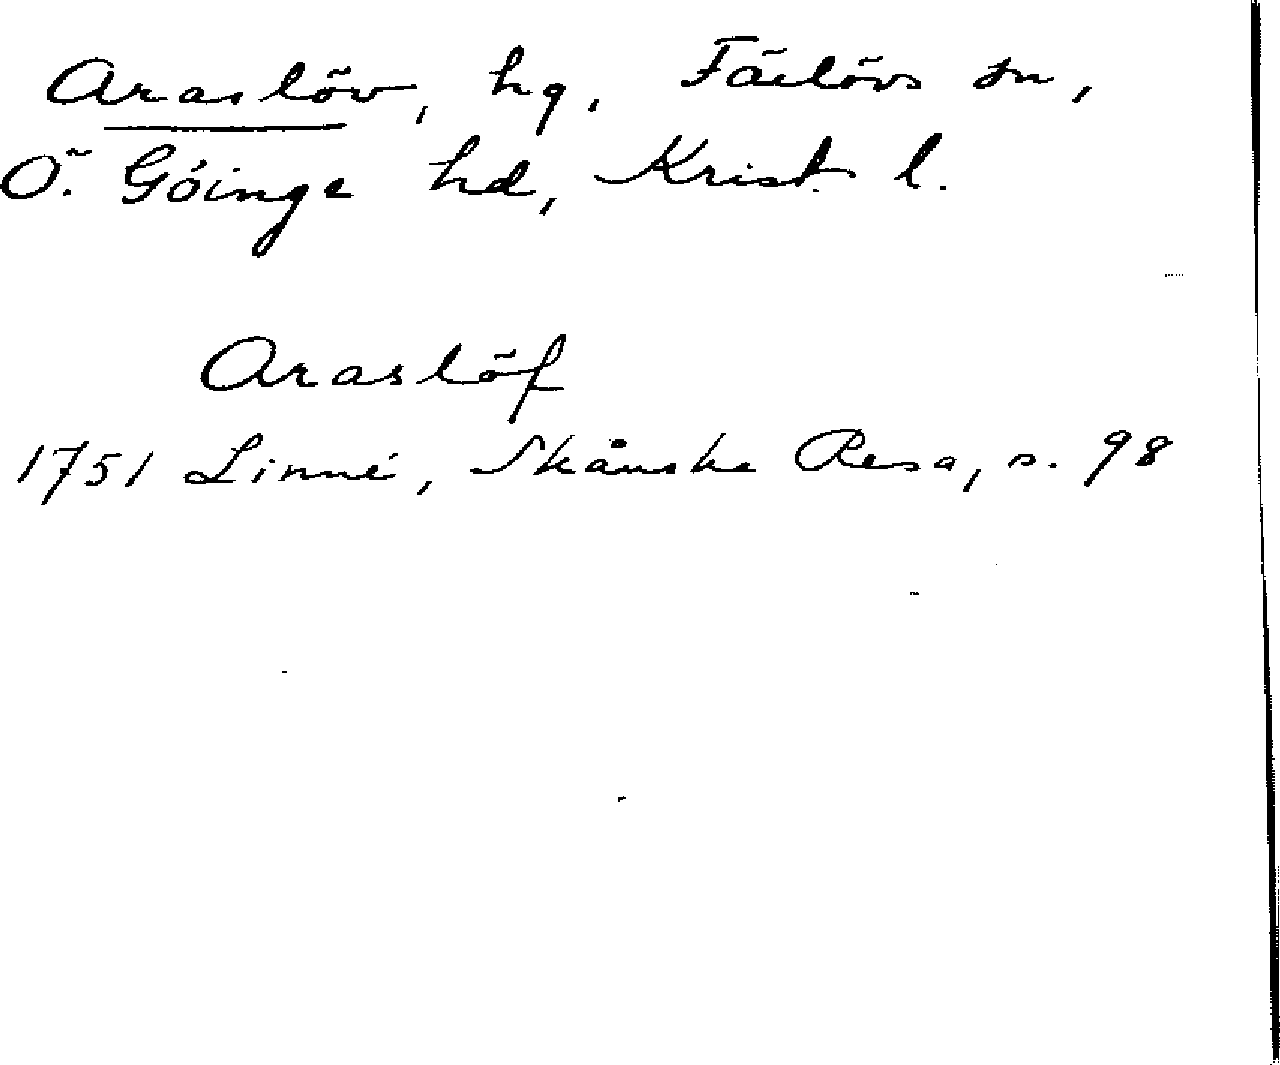 Araslöv, hg. Färlövs sn,
Ö. Göinge hd, Krist. l.
Araslöf
1751 Linné, Skånska Resa, s. 98